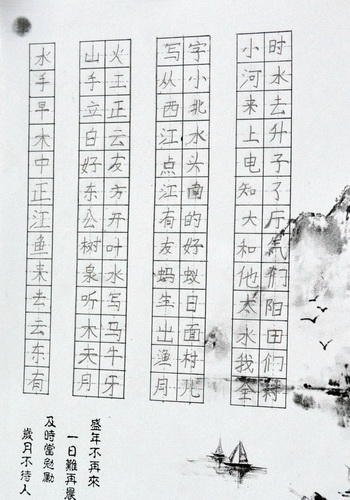 时水去升子了厅气们阳田们村
小河来上电知大和他太水我全
字小北水头南的好蚁日面村儿
写从西江点江有友蚂生出渔月
火王正云友方开叶水写马牛牙
山手立白好东公树泉听木夫月
水手早木中正江鱼来去云东有
盛年不再來
一日難再晨
及時當勉勵
歲月不待人